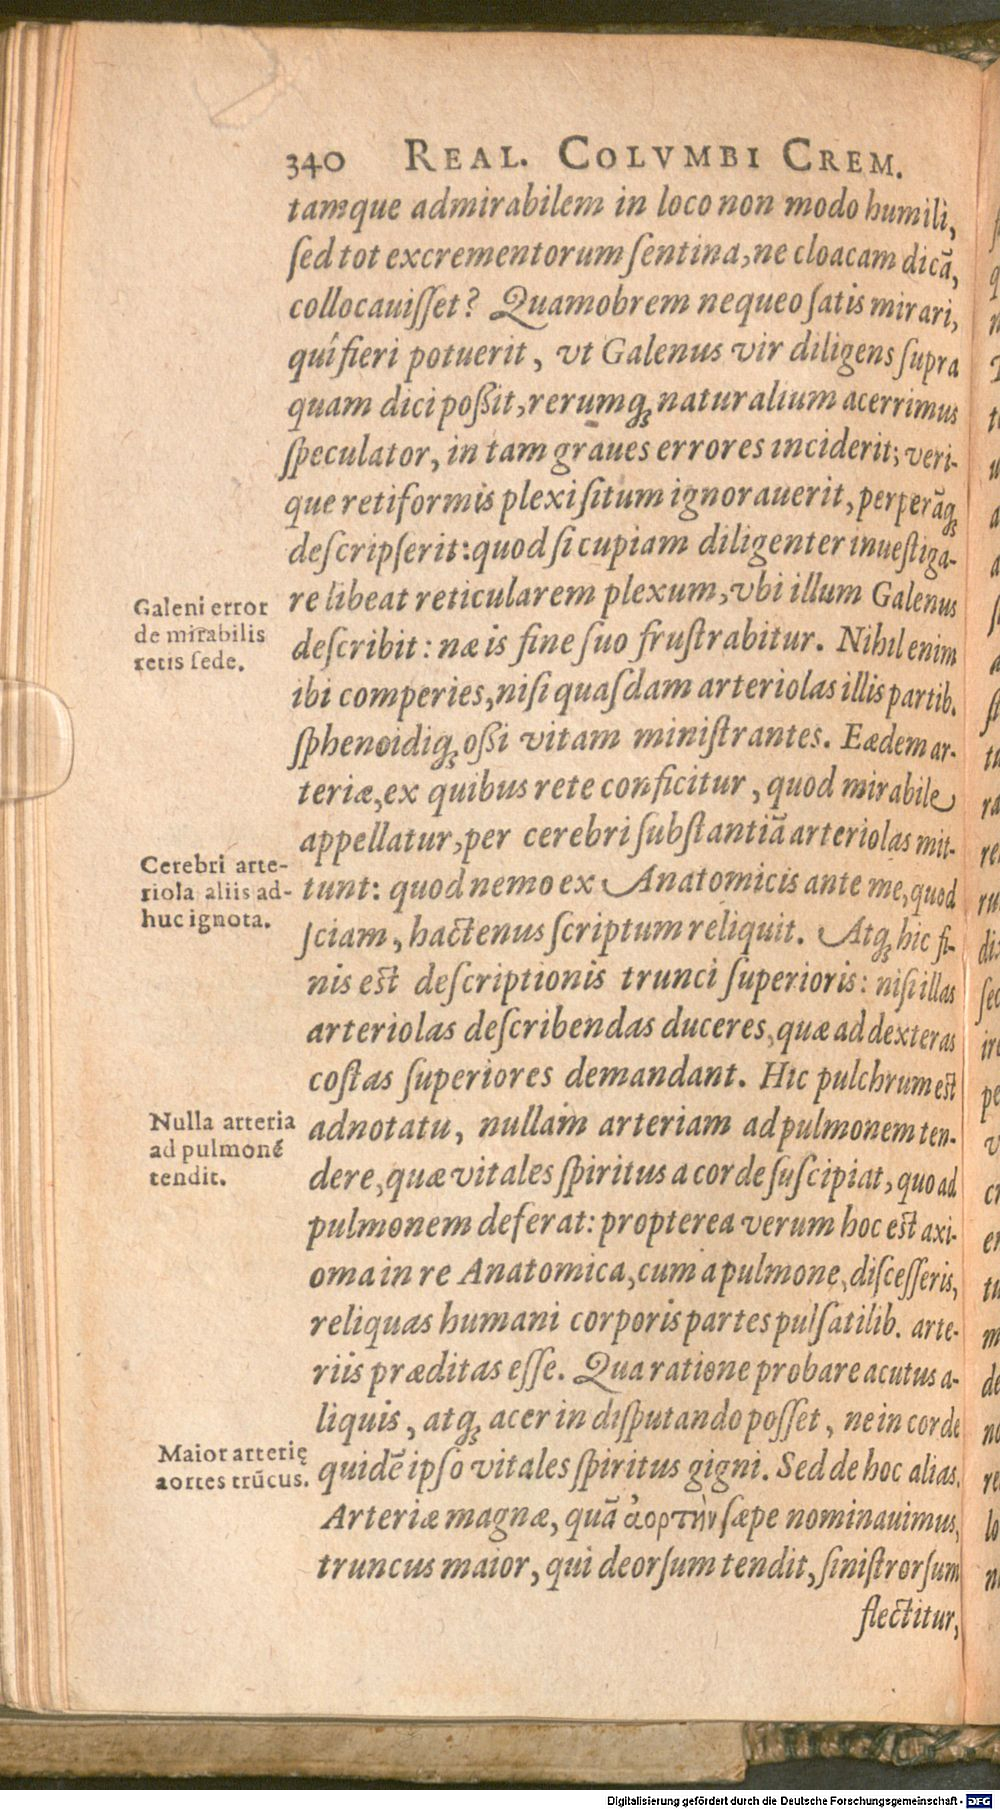 340 REAL. COLVMBI CREM.
tamque admirabilem in loco non modo humili,
ſed tot excrementorum ſentina, ne cloacam dicā,
collocauiſſet? Quamobrem nequeo ſatis mirari,
quî fieri potuerit, vt Galenus vir diligens ſupra
quam dici poßit, rerumqꝫ naturalium acerrimus
ſpeculator, in tam graues errores inciderit; veri-
que retiformis plexi ſitum ignorauerit, perperāqꝫ
deſcripſerit: quod ſi cupiam diligenter inueſtiga-
re libeat reticularem plexum, vbi illum Galenus
deſcribit: næ is fine ſuo fruſtrabitur. Nihil enim
ibi comperies, niſi quaſdam arteriolas illis partib.
ſphenoidiqꝫ oßi vitam miniſtrantes. Eædem ar-
teriæ, ex quibus rete conficitur, quod mirabile
appellatur, per cerebri ſubſtantiā arteriolas mit-
tunt: quod nemo ex Anatomicis ante me, quod
ſciam, hactenus ſcriptum reliquit. Atqꝫ hic fi-
nis est deſcriptionis trunci ſuperioris: niſi illas
arteriolas deſcribendas duceres, quæ ad dexteras
coſtas ſuperiores demandant. Hic pulchrum est
adnotatu, nullam arteriam ad pulmonem ten-
dere, quæ vitales ſpiritus a corde ſuſcipiat, quo ad
pulmonem deferat: propterea verum hoc est axi-
oma in re Anatomica, cum a pulmone, diſceſſeris,
reliquas humani corporis partes pulſatilib. arte-
riis præditas eſſe. Qua ratione probare acutus a-
liquis, atqꝫ acer in diſputando poſſet, ne in corde
quidē ipſo vitales ſpiritus gigni. Sed de hoc alias.
Arteriæ magnæ, quā ἀορτὴν ſæpe nominauimus,
truncus maior, qui deorſum tendit, ſiniſtrorſum
flectitur,
Galeni error
de mirabilis
retis ſede.
Cerebri arte-
riola aliis ad-
huc ignota.
Nulla arteria
ad pulmonē
tendit.
Maior arterię
aortes trūcus.
Digitalisierung gefördert durch die Deutsche Forschungsgemeinschaft - DFG